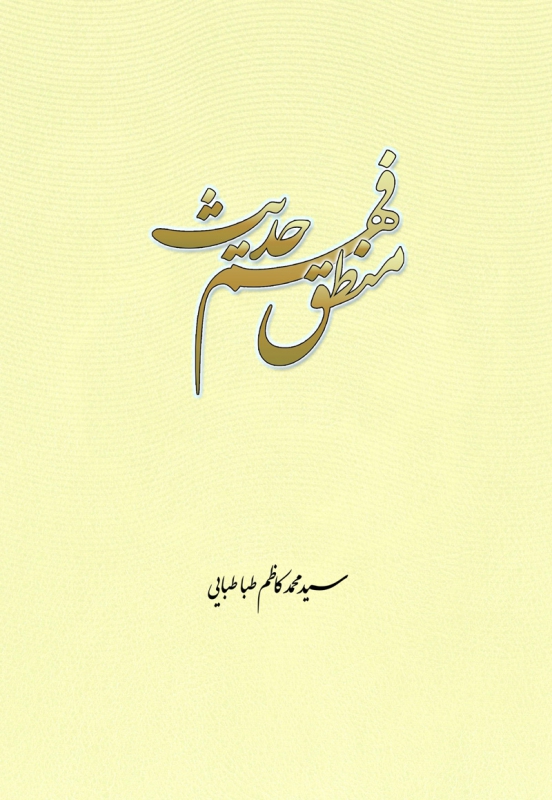 منطق فهم حدیث
سید محمد کاظم طباطبایی